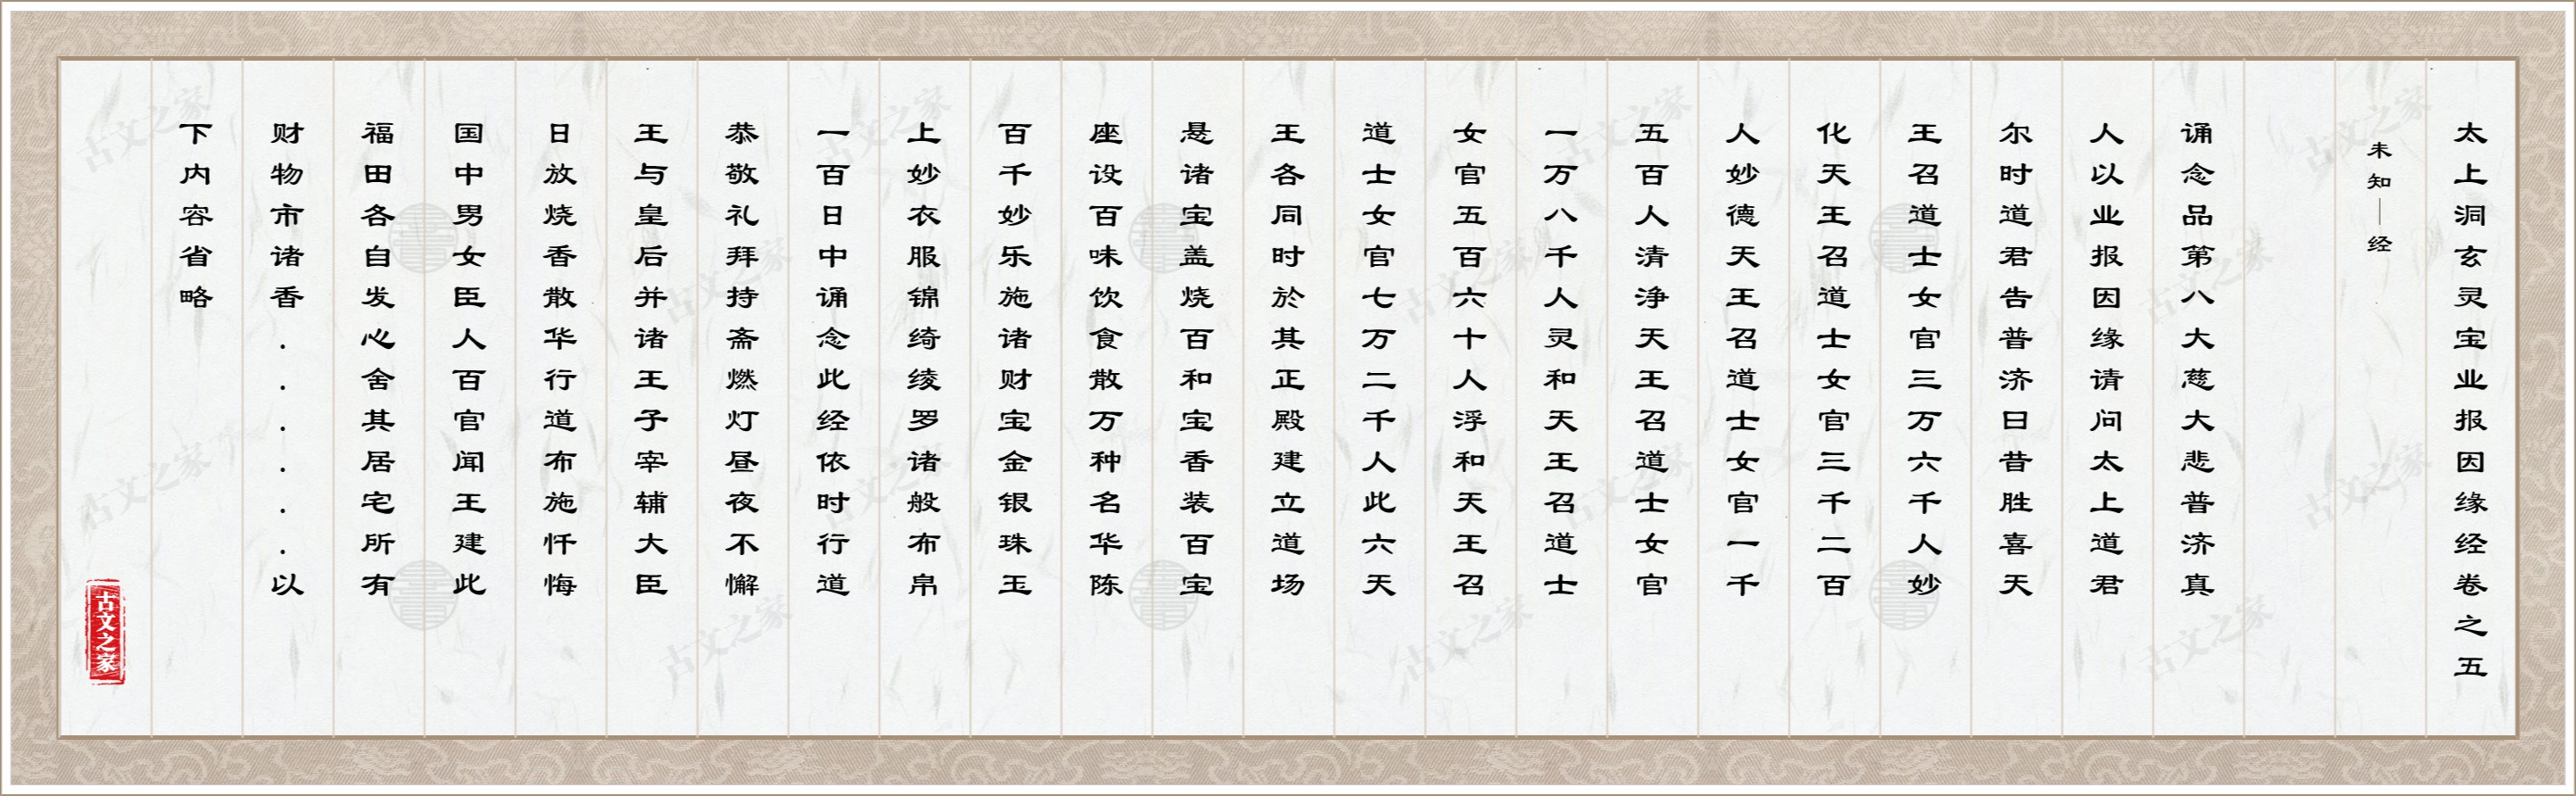 太上洞玄灵宝业报因缘经卷之五
未知｜经
诵念品第八大慈大悲普济真
人以业报因缘请问太上道君
尔时道君告普济曰昔胜喜天
王召道士女官三万六千人妙
化天王召道士女官三千二百
人妙德天王召道士女官一千
五百人清浄天王召道士女官
一万八千人灵和天王召道士
女官五百六十人浮和天王召
道士女官七万二千人此六天
王各同时於其正殿建立道场
悬诸宝盖烧百和宝香装百宝
座设百味饮食散万种名华陈
百千妙乐施诸财宝金银珠玉
上妙衣服锦绮绫罗诸般布帛
一百日中诵念此经依时行道
恭敬礼拜持斋燃灯昼夜不懈
王与皇后并诸王子宰辅大臣
日放烧香散华行道布施忏悔
国中男女臣人百官闻王建此
福田各自发心舍其居宅所有
财物市诸香......以
下内容省略
古文之家